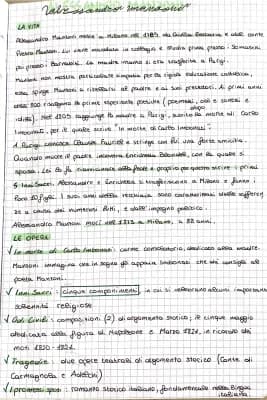 Alessandro Manzoni
LA VITA
Alessandro Manzoni nasce a Milano nel 1785 da Giulia Beccaria e dal conte
Pietro Manzoni. Lui viene mandato in collegio e studia prima presso i Somaschi
poi presso i Barnabiti. La madre invece si era trasferita a Parigi.
Manzoni non mostra particolare simpatia per la rigida educazione cattolica,
essa spinge Manzoni a ribellarsi al padre e ai suoi precettori. Ai primi anni
dell'800 risalgono le prime esperienze poetiche (poemas, odi e sonetti e
idilli). Nel 1805 raggiunge la madre a Parigi, scritto la morte di Carlo
Imbonati, per il quale scrive "In morte di Carlo Imbonati".
A Parigi conosce Claude Fauriel e stringe con lui una forte amicizia.
Quando muore il padre incontra Enrichetta Blondel, con la quale si
sposa. Lei lo fa riavvicinare alla fede e proprio per questo scrive i primi
5 Inni Sacri. Alessandro e Enrichetta si trasferiscono a Milano e hanno i
loro 10 figli. I suoi anni della vecchiaia sono caratterizzati dalle sofferen
ze a causa dei numerosi lutti, e dall'impegno politico.
Alessandro Manzoni morì nel 1873 a Milano, a 88 anni.
LE OPERE
In morte di Carlo Imbonati: carme consolatorio, dedicato alla madre.
Manzoni immagina che in sogno gli appaia Imbonati che dia consigli al
poeta Manzoni.
Inni Sacri: cinque componimenti, in cui si celebrano alcune importanti
solennità religiose
Odi Civili: composizioni (2) di argomento storico; il cinque maggio
dedicata alla figura di Napoleone e Marzo 1821, in ricordo dei
moti 1820-1821.
Tragedie: due opere teatrali di argomento storico (Conte di
Carmagnola e Adelchi)
I promessi sposi: romanzo storico italiano, fondamentale nella lingua
italiana.